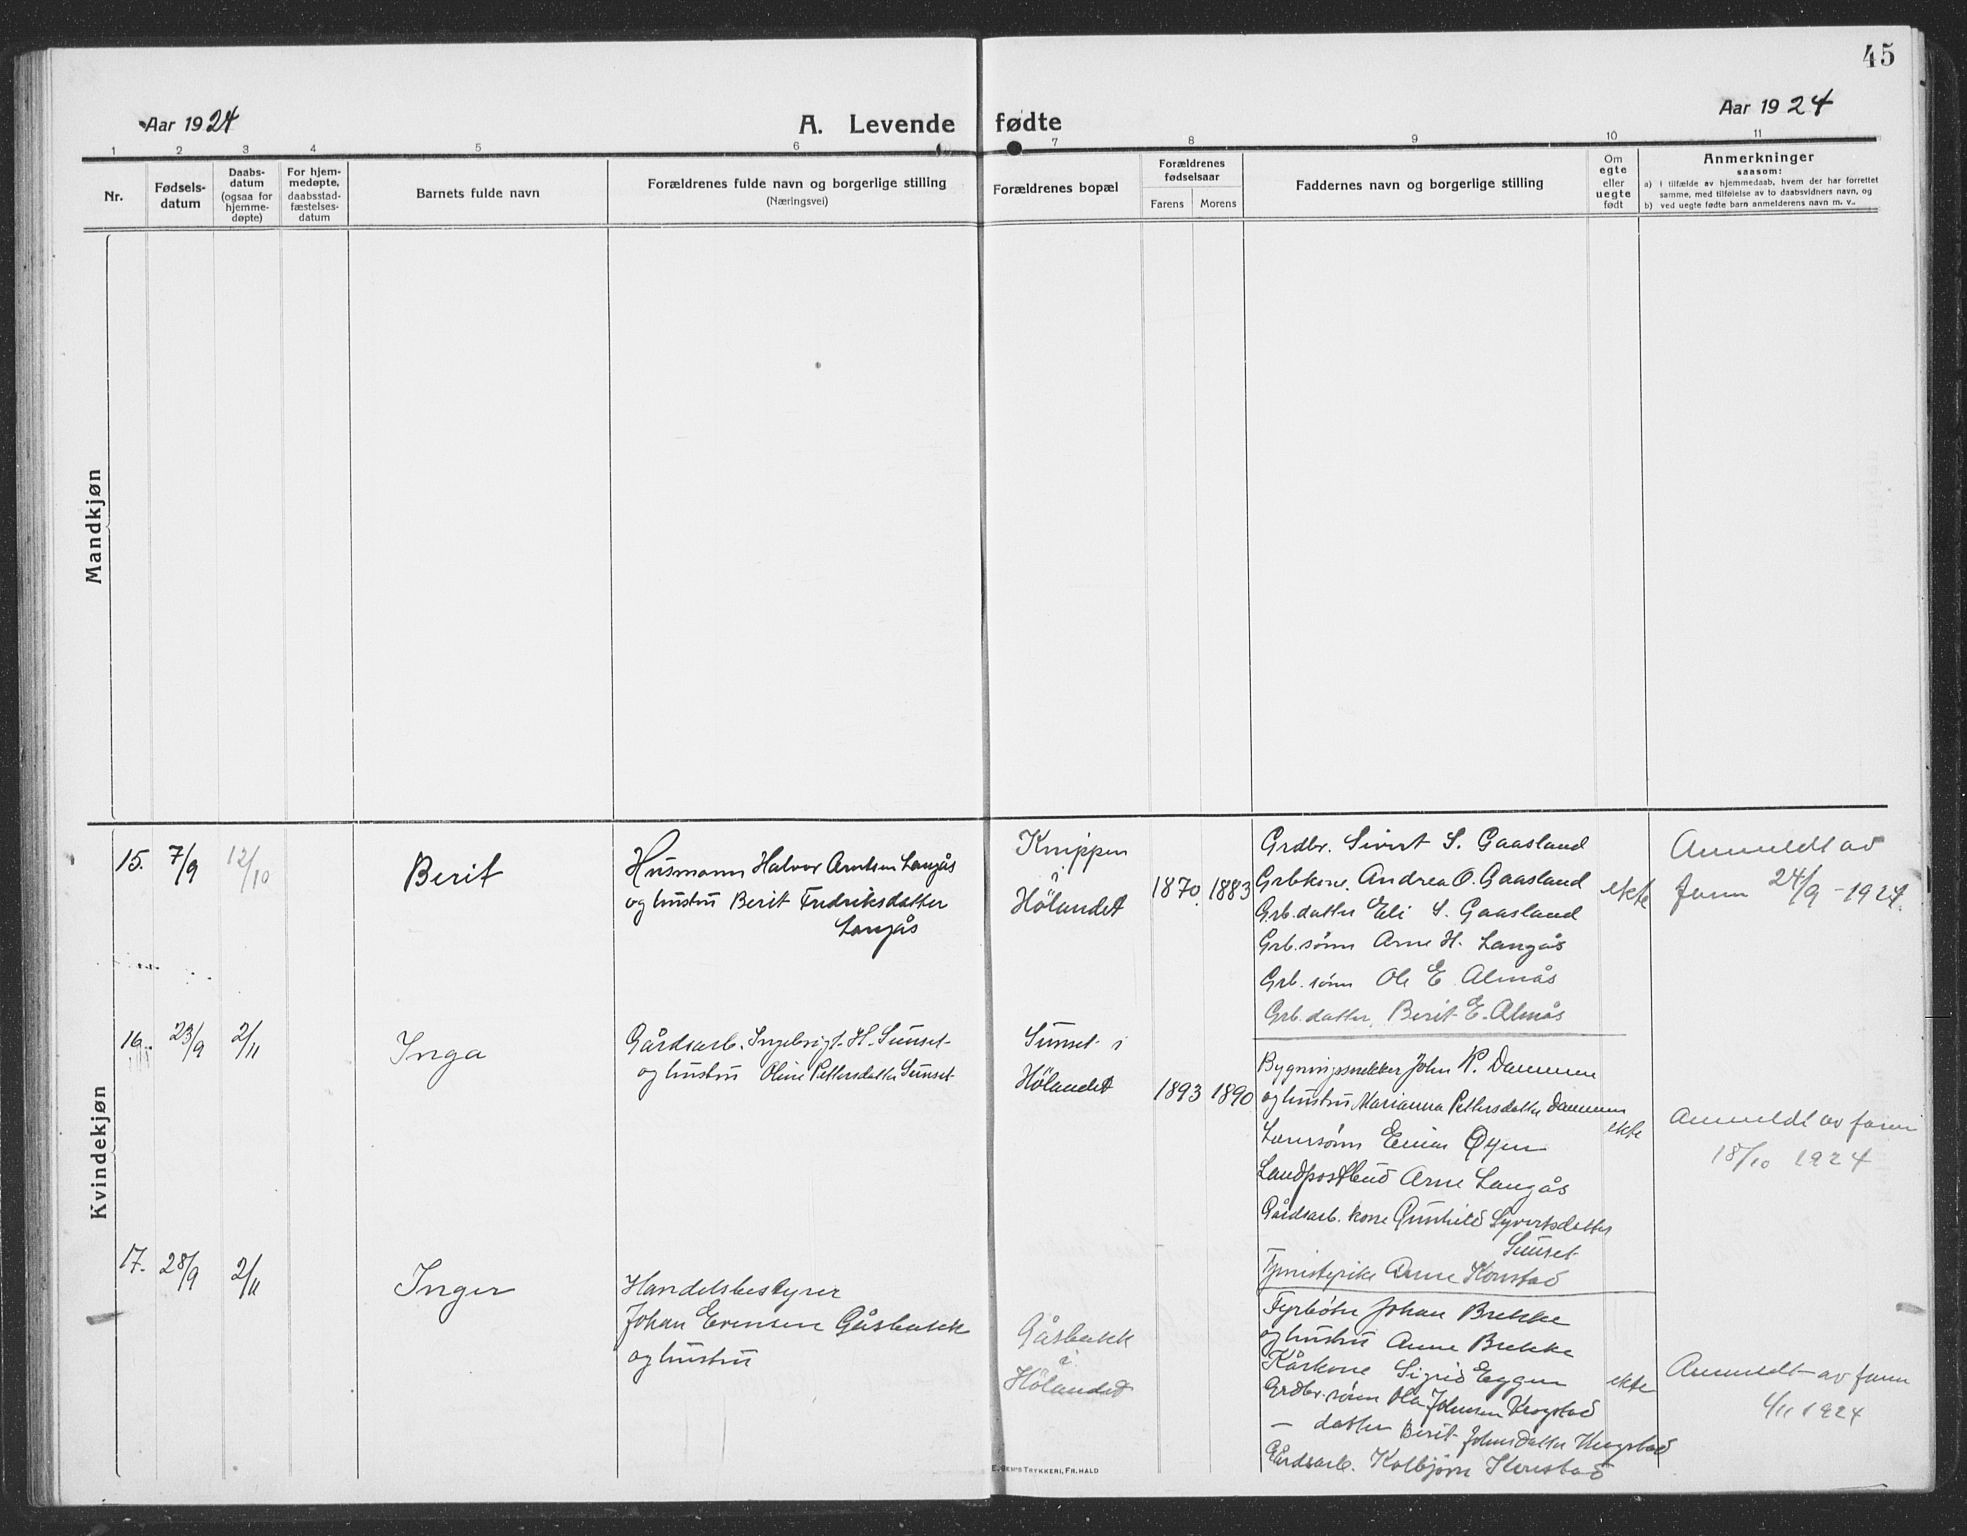 45
Aar 1924
A. Levende fødte
Aar 1924
1 2 3 4 5 6 7 8 9 10 11
Nr.
Fødsels-
datum
Daabs-
datum
(ogsaa for
hjemme-
døpte)
For hjem-
medøpte,
daabsstad-
fæstelses-
datum
Barnets fulde navn
Forældrenes fulde navn og borgerlige stilling
(Næringsvei)
Forældrenes bopæl
Forældrenes
fødselsaar
Farens Morens
Faddernes navn og borgerlige stilling
Om
egte
eller
uegte
født
Anmerkninger
saasom:
a) i tilfælde av hjemmedaab, hvem der har forrettet
samme, med tilføielse av to daabsvidners navn, og
b) ved uegte fødte barn anmelderens navn m. v..
Mandkjøn
Kvindekjøn
15. 7/9 12/10
Berit
Husmann Halvor Arntsen Langås
og hustru Berit Fredriksdatter
Langås
Knippen
i
Hölandet
1870. 1883
Grdbr. Sivert S. Gaasland
Grbkone. Andrea O. Gaasland
Grb.datter Eli S. Gaasland
Grb.sønn Arne H. Langås
Grb.sønn Ole E Almås
Grb.datter, Berit E. Almås
ekte
Anmeldt av
faren 24/9-1924.
16. 23/9 2/11
Inga
Gårdsarb. Ingebrigt H. Sunset
og hustru Oline Pettersdatter Sunset
Sunset i
Hölandet
1893 1890
John P. Dammen
og hustru Marianna Pettersdatter Dammen
Einar Øyen
Landpostbud Arne Langås
Gårdsarb. kone Gunhild Syvertsdatter
Sunset
Tjenistepike Anne Konstad
ekte
Anmeldt av faren
18/10 1924
17. 28/9 2/11
Inger
Handelsbestyrer
Johan Evensen Gåsbakk
og hustru
Gåsbakk
i
Hölandet
Fyrbøter Johan Brekke
og hustru Anne Brekke
Kårkone Sigrid Eggen
Grdbr.sønn Ola Johnsen Krogstad
— datter Berit Johnsdatter Krogstad
Gårdsarb. Kolbjørn Konstad
ekte
Anmeldt av faren
4/11 1924
TRYKKERI, FR. HALD